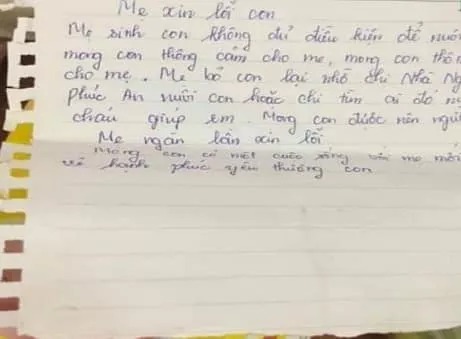 Mẹ xin lỗi con
Mẹ sinh con không đủ điều kiện để nuôi
mong con thông cảm cho mẹ, mong con thô
cho mẹ. Mẹ bỏ con lại nhờ chị Nhà Ng
Phúc An nuôi con hoặc chị tìm ai đó n
cháu giúp em. Mong con được nên ngư
Mẹ ngàn lần xin lỗi
Mong con có một cuộc sống với mẹ mới
về hạnh phúc yêu thương con